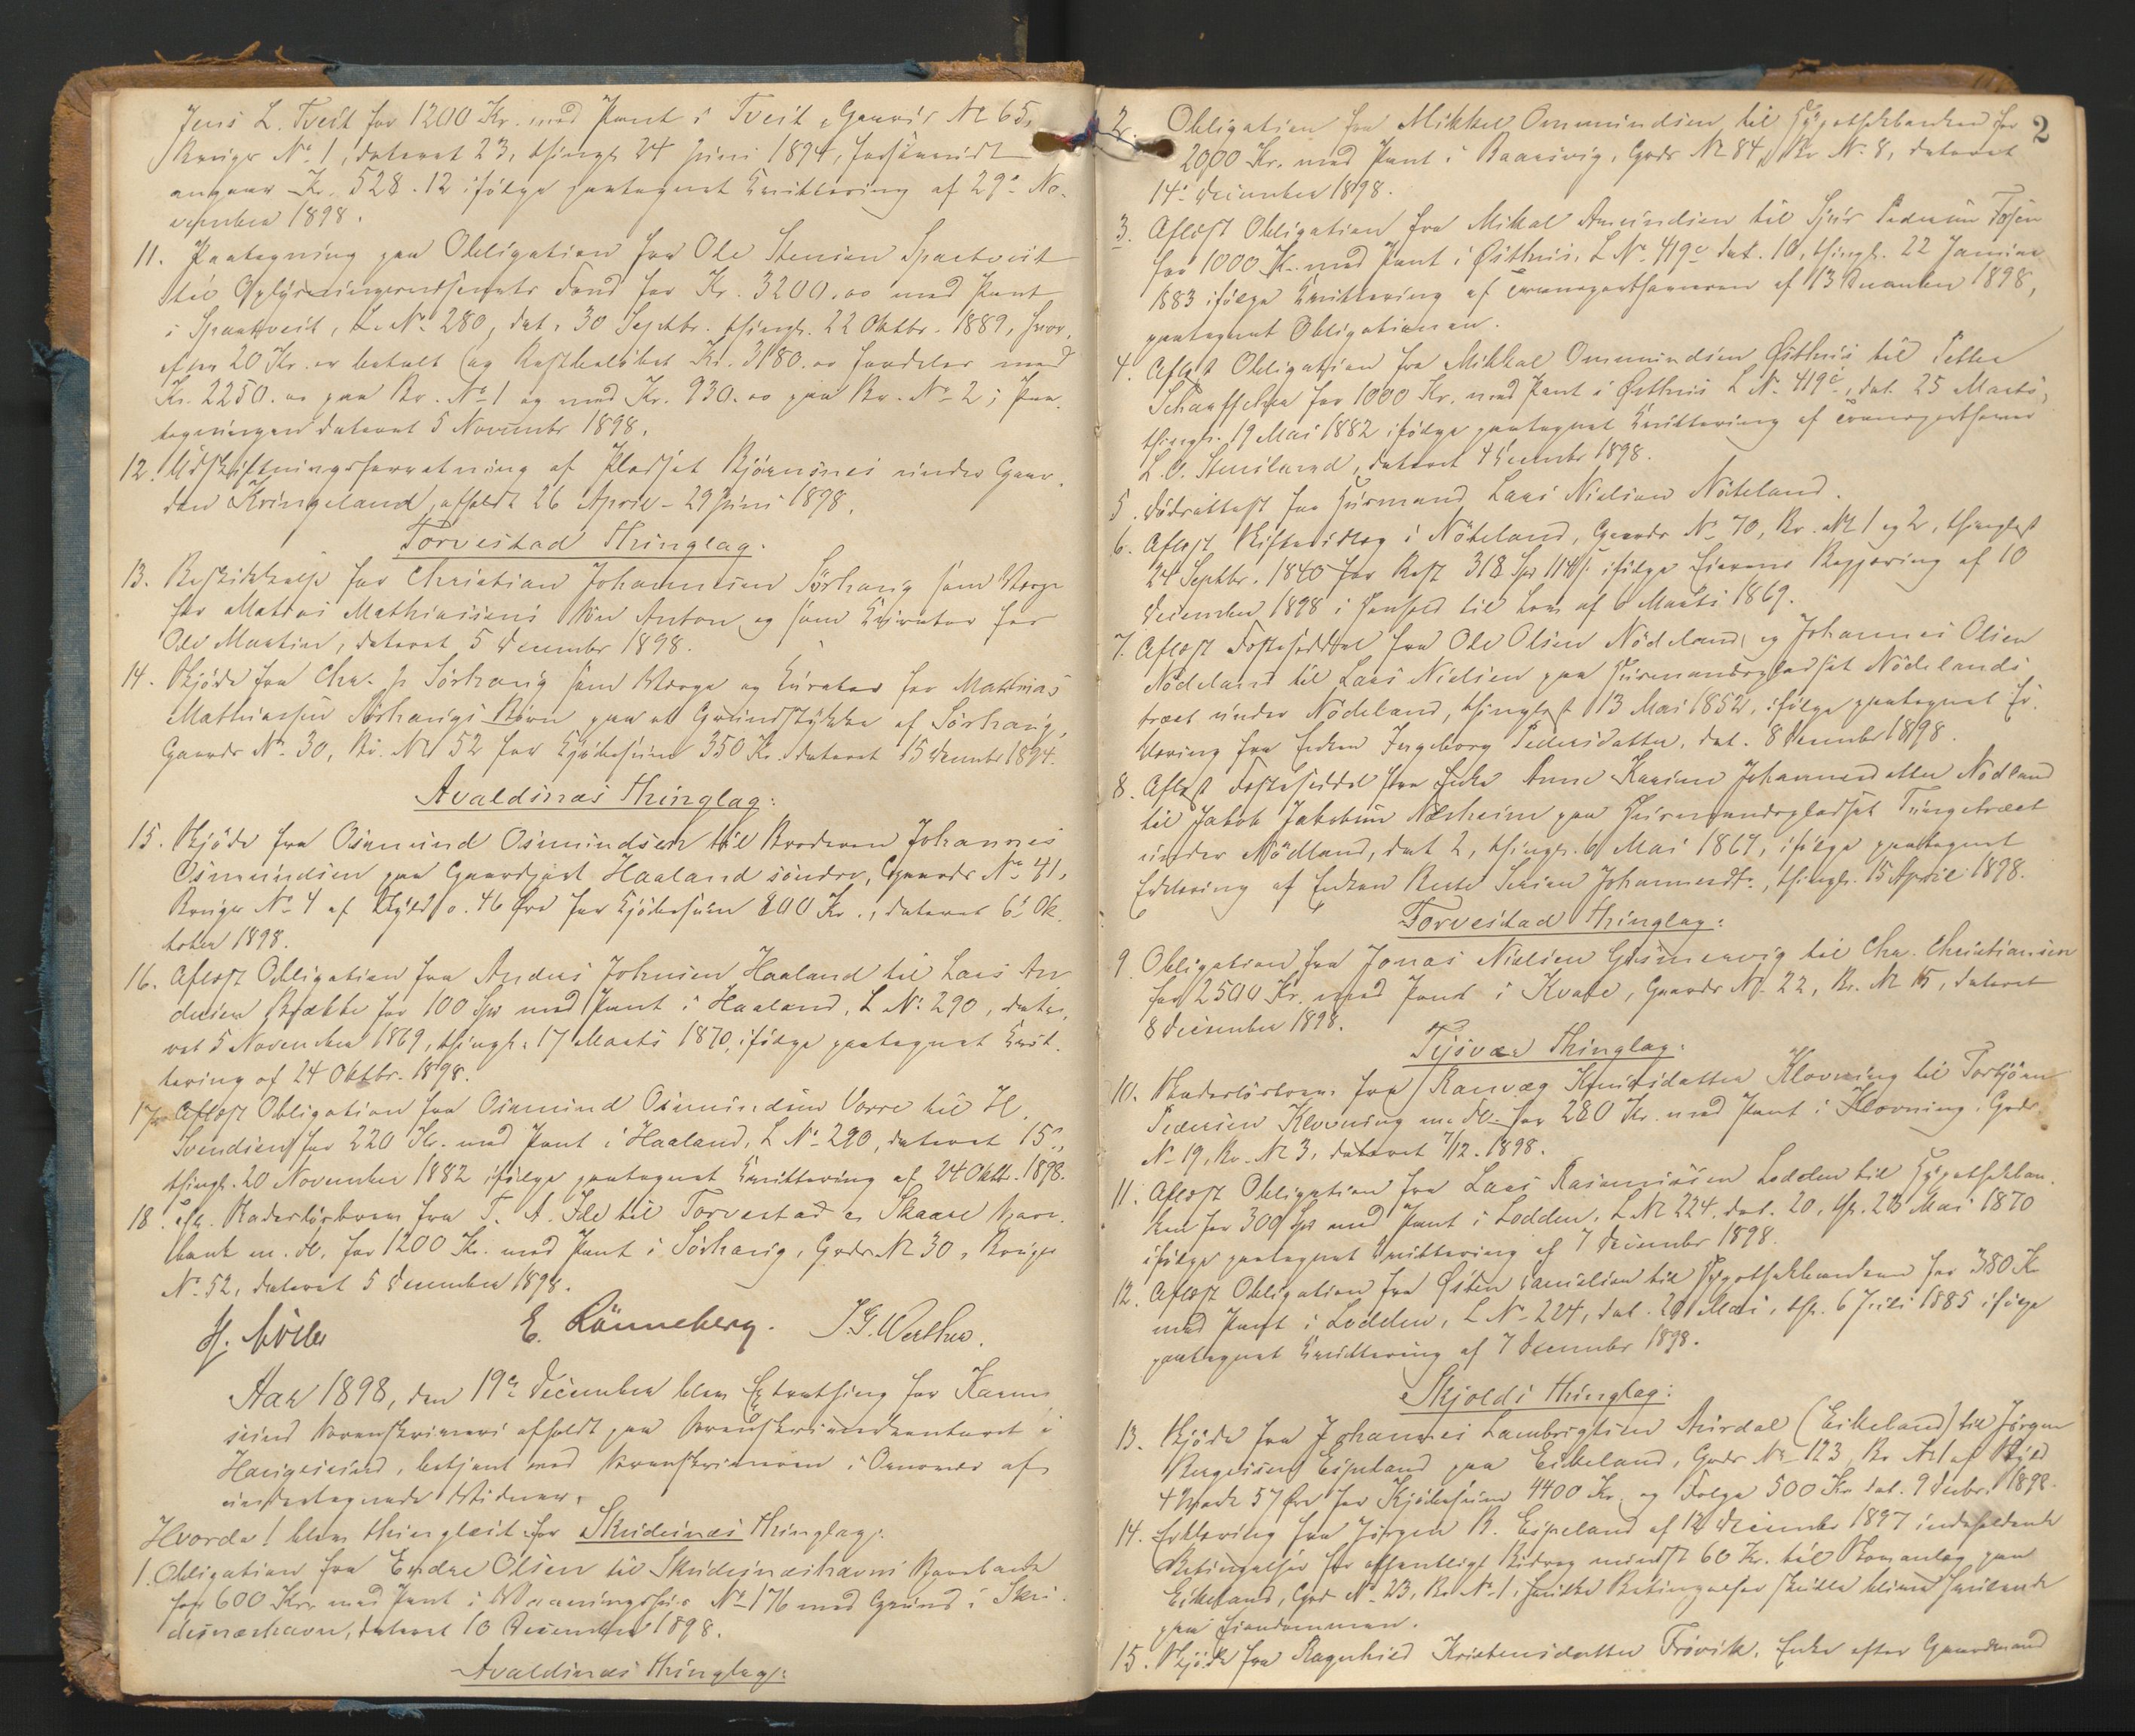 Jens L. Tveit for 1200 Kr. med Pant i Tveit, Gaards № 65,
Brugs № 1, dateret 23, thingl. 24 Juni 1894, forsaavidt
angaar Kr. 528.12 ifölge paategnet Kvittering af 29de No-
vember 1898.
11. Paategning paa Obligation fra Ole Stensen Spaatveit
til Oplysningsvæsenets Fond for Kr. 3200.00 med Pant
i Spaatveit, L. № 280, dat. 30 Septbr. thingl. 22 Oktbr. 1889, hvor-
efter 20 Kr. er betalt og Restbelöbet Kr. 3180.00 fordeles med
Kr. 2250.00 paa Br. № 1 og med Kr. 930.00 paa Br. № 2; Paa-
tegningen dateret 5 Novembr 1898.
12. Udskiftningsforretning af Pladset Björnsnes under Gaar-
den Kringeland, afholdt 26 April - 29 Juni 1898.
Torvestad Thinglag:
13. Beskikkelse for Christian Johannesen Sörhaug som Værge
for Mathias Mathiassens Sön Anton og som Kurator for
Ole Martin, dateret 5 December 1898.
14. Skjöde fra Chr. J. Sörhaug som Værge og Kurator for Mathias
Mathiassen Sörhaugs Börn paa et Grundstykke af Sörhaug,
Gaards № 30, Br. № 52 for Kjöbesum 350 Kr. dateret 15 Decembr 1894.
Avaldsnæs Thinglag:
15. Skjöde fra Osmund Osmundsen til Broderen Johannes
Osmundsen paa Gaardpart Haaland söndre, Gaards № 41,
Brugs № 4 af Skyld o. 46 Øre for Kjöbesum 800 Kr., dateret 6te Ok-
tober 1898.
16. Aflöst Obligation fra Anders Johnsen Haaland til Lars An-
dersen Stakke for 100 Spd med Pant i Haaland, L № 290, date-
ret 5 November 1869, thingl. 17 Marts 1870, ifölge paategnet Kvit-
tering af 24 Oktbr. 1898.
17. Aflöst Obligation fra Osmund Osmundsen Vorre til H.
Svendsen for 220 Kr. med Pant i Haaland, L № 290, dateret 15de,
thingl. 20 November 1882 ifölge paategnet Kvittering af 24 Oktb. 1898.
18. Skadeslösbrev fra T. A. Ile til Torvestad & Skaare Spare-
bank m. fl. for 1200 Kr. med Pant i Sörhaug, Grds № 30, Brugs
№ 52, dateret 5 December 1898.
E. Rönneberg. J. G. Werther.
Aar 1898, den 19de December blev Extrathing for Karm-
sund Sorenskriveri afholdt paa Sorenskriverkontoret i
Haugesund, betjent med Sorenskriveren i Overvær af
undertegnede Vidner.
Hvorda! blev thinglæst for Skudesnæs Thinglag:
1. Obligation fra Endre Olsen til Skudesnæshavns Sparebank
for 600 Kr. med Pant i Vaaningshus № 176 med Grund i Sku-
desnæshavn, dateret 10 December 1898.
Avaldsnæs Thinglag:
2
2. Obligation fra Mikkel Ommundsen til Hypothekbanken for
2000 Kr. med Pant i Baasvig, Grds № 84, Br № 8, dateret
14de December 1898.
3. Aflöst Obligation fra Mikal Amundsen til Sjur Pedersen Fosen
for 1000 Kr. med Pant i Østhus, L № 419c dat. 10, thingl. 22 Januar
1883 ifölge Kvittering af Transporthaveren af 13 December 1898,
paategnet Obligationen.
4. Aflöst Obligation fra Mikkel Ommundsen Østhus til Petter
for 1000 Kr. med Pant i Østhus L № 419c, dat. 25 Marts,
thingl. 19 Mai 1882 ifölge paategnet Kvittering af Transporthaver
L. O. dateret 4 Decembr 1898.
5. Dödsattest for Husmand Lars Nielsen Nödeland.
6. Aflöst Skifteudlæg i Nödeland, Gaards № 70, Br. № 1 og 2, thinglyst
24 Septbr. 1840 for Rest 318 Spd 114 s. ifölge Eierens Begjæring af 10
December 1898 i Henhold til Lov af 6 Marts 1869.
7. Aflöst Fæsteseddel fra Ole Olsen Nödeland og Johannes Olsen
Nödeland til Lars Nielsen paa Husmandspladset Nödelands-
træet under Nödeland, thinglyst 13 Mai 1852, ifölge paategnet Er-
klæring fra Enken Ingeborg Pedersdatter, dat. 8 December 1898.
8. Aflöst Fæsteseddel fra Enke Anne Karine Johannesdatter Nödland
til Jakob Jakobsen Næsheim paa Husmandspladset Tungetræet
under Nödland, dat 2, thingl. 6 Mai 1867, ifölge paategnet
Erklæring af Enken Berte Serine Johannesdtr., thingl. 15 April 1898.
Torvestad Thinglag:
9. Obligation fra Jonas Nielsen til Chr. Christiansen
for 2500 Kr. med Pant i Kvale, Gaards № 22, Br. № 15, dateret
8 December 1898.
Tysvær Thinglag:
10. Skadeslösbrev fra Ranvæg Knudsdatter Klovning til Torbjörn
Pedersen Klovning m. fl. for 280 Kr. med Pant i Klovning, Grds
№ 19, Br. № 3, dateret 7/12. 1898.
11. Aflöst Obligation fra Lars Rasmussen Lodden til Hypothekban-
ken for 300 Spd med Pant i Lodden, L № 224, dat. 20, thl. 23 Mai 1870
ifölge paategnet Kvittering af 7 Decembr 1898.
12. Aflöst Obligation fra Østen Danielsen til Hypothekbanken for 380 Kr
med Pant i Lodden, L № 224, dat. 20 Mai, thl. 6 Juli 1885 ifölge
paategnet Kvittering af 7 Decembr 1898.
Skjolds Thinglag:
13. Skjöde fra Johannes Lambrigtsen Aursdal (Eikeland) til Jörgen
Espeland paa Eikeland, Grds № 123, Br № 1 af Skyld
4 Mark 57 Øre for Kjöbesum 4400 Kr. og Folge 500 Kr. dat. 9 Decbr. 1898.
14. Erklæring fra Jörgen B. Espeland af 12 Decembr 1897 indeholdende
Betingelser for offentligt Bidrag mindst 60 Kr. til Skovanlæg paa
Eikeland, Grd № 23, Br № 1, hvilke Betingelser skulle blive hvilende
paa Eiendommen.
15. Skjöde fra Ragnhild Kristensdatter Frövik, Enke efter Gaardmand